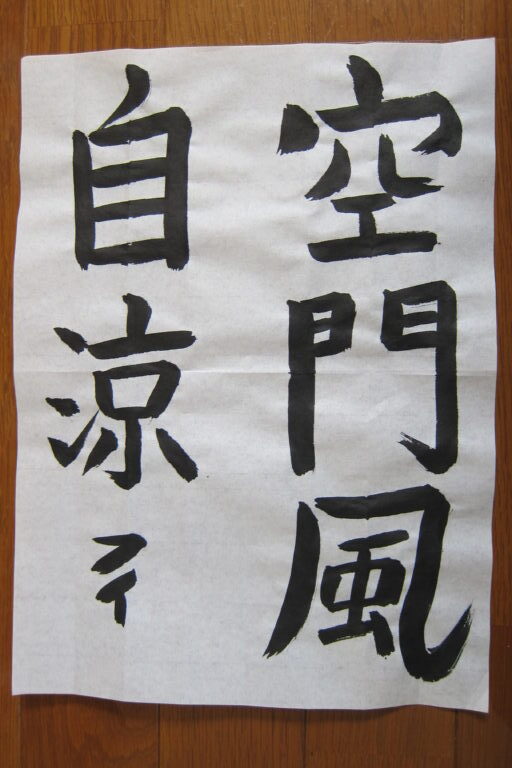 空門風
自涼